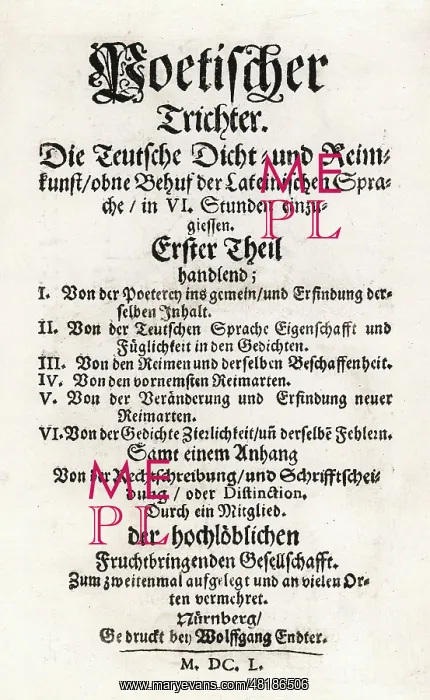 Poetischer
Trichter.
Die Teutsche Dicht- und Reim-
kunst/ohne Behuf der Lateinischen Spra-
che / in VI. Stunden einzu-
giessen.
Erster Theil
handlend;
I. Von der Poeterey ins gemein/und Erfindung der-
selben Jnhalt.
II. Von der Teutschen Sprache Eigenschafft und
Füglichkeit in den Gedichten.
III. Von den Reimen und derselben Beschaffenheit.
IV. Von den vornemsten Reimarten.
V. Von der Veränderung und Erfindung neuer
Reimarten.
VI. Von der Gedichte Zierlichkeit/uñ derselbẽ Fehlern.
Samt einem Anhang
Von der Rechtschreibung/und Schrifftschei-
dung / oder Distinction.
Durch ein Mitglied.
der hochlöblichen
Fruchtbringenden Gesellschafft.
Zum zweitenmal aufgelegt und an vielen Or-
ten vermehret.
Nürnberg/
Gedruckt bey Wolffgang Endter.
M. DC. L.
ME
PL
ME
PL
www.maryevans.com/48186506